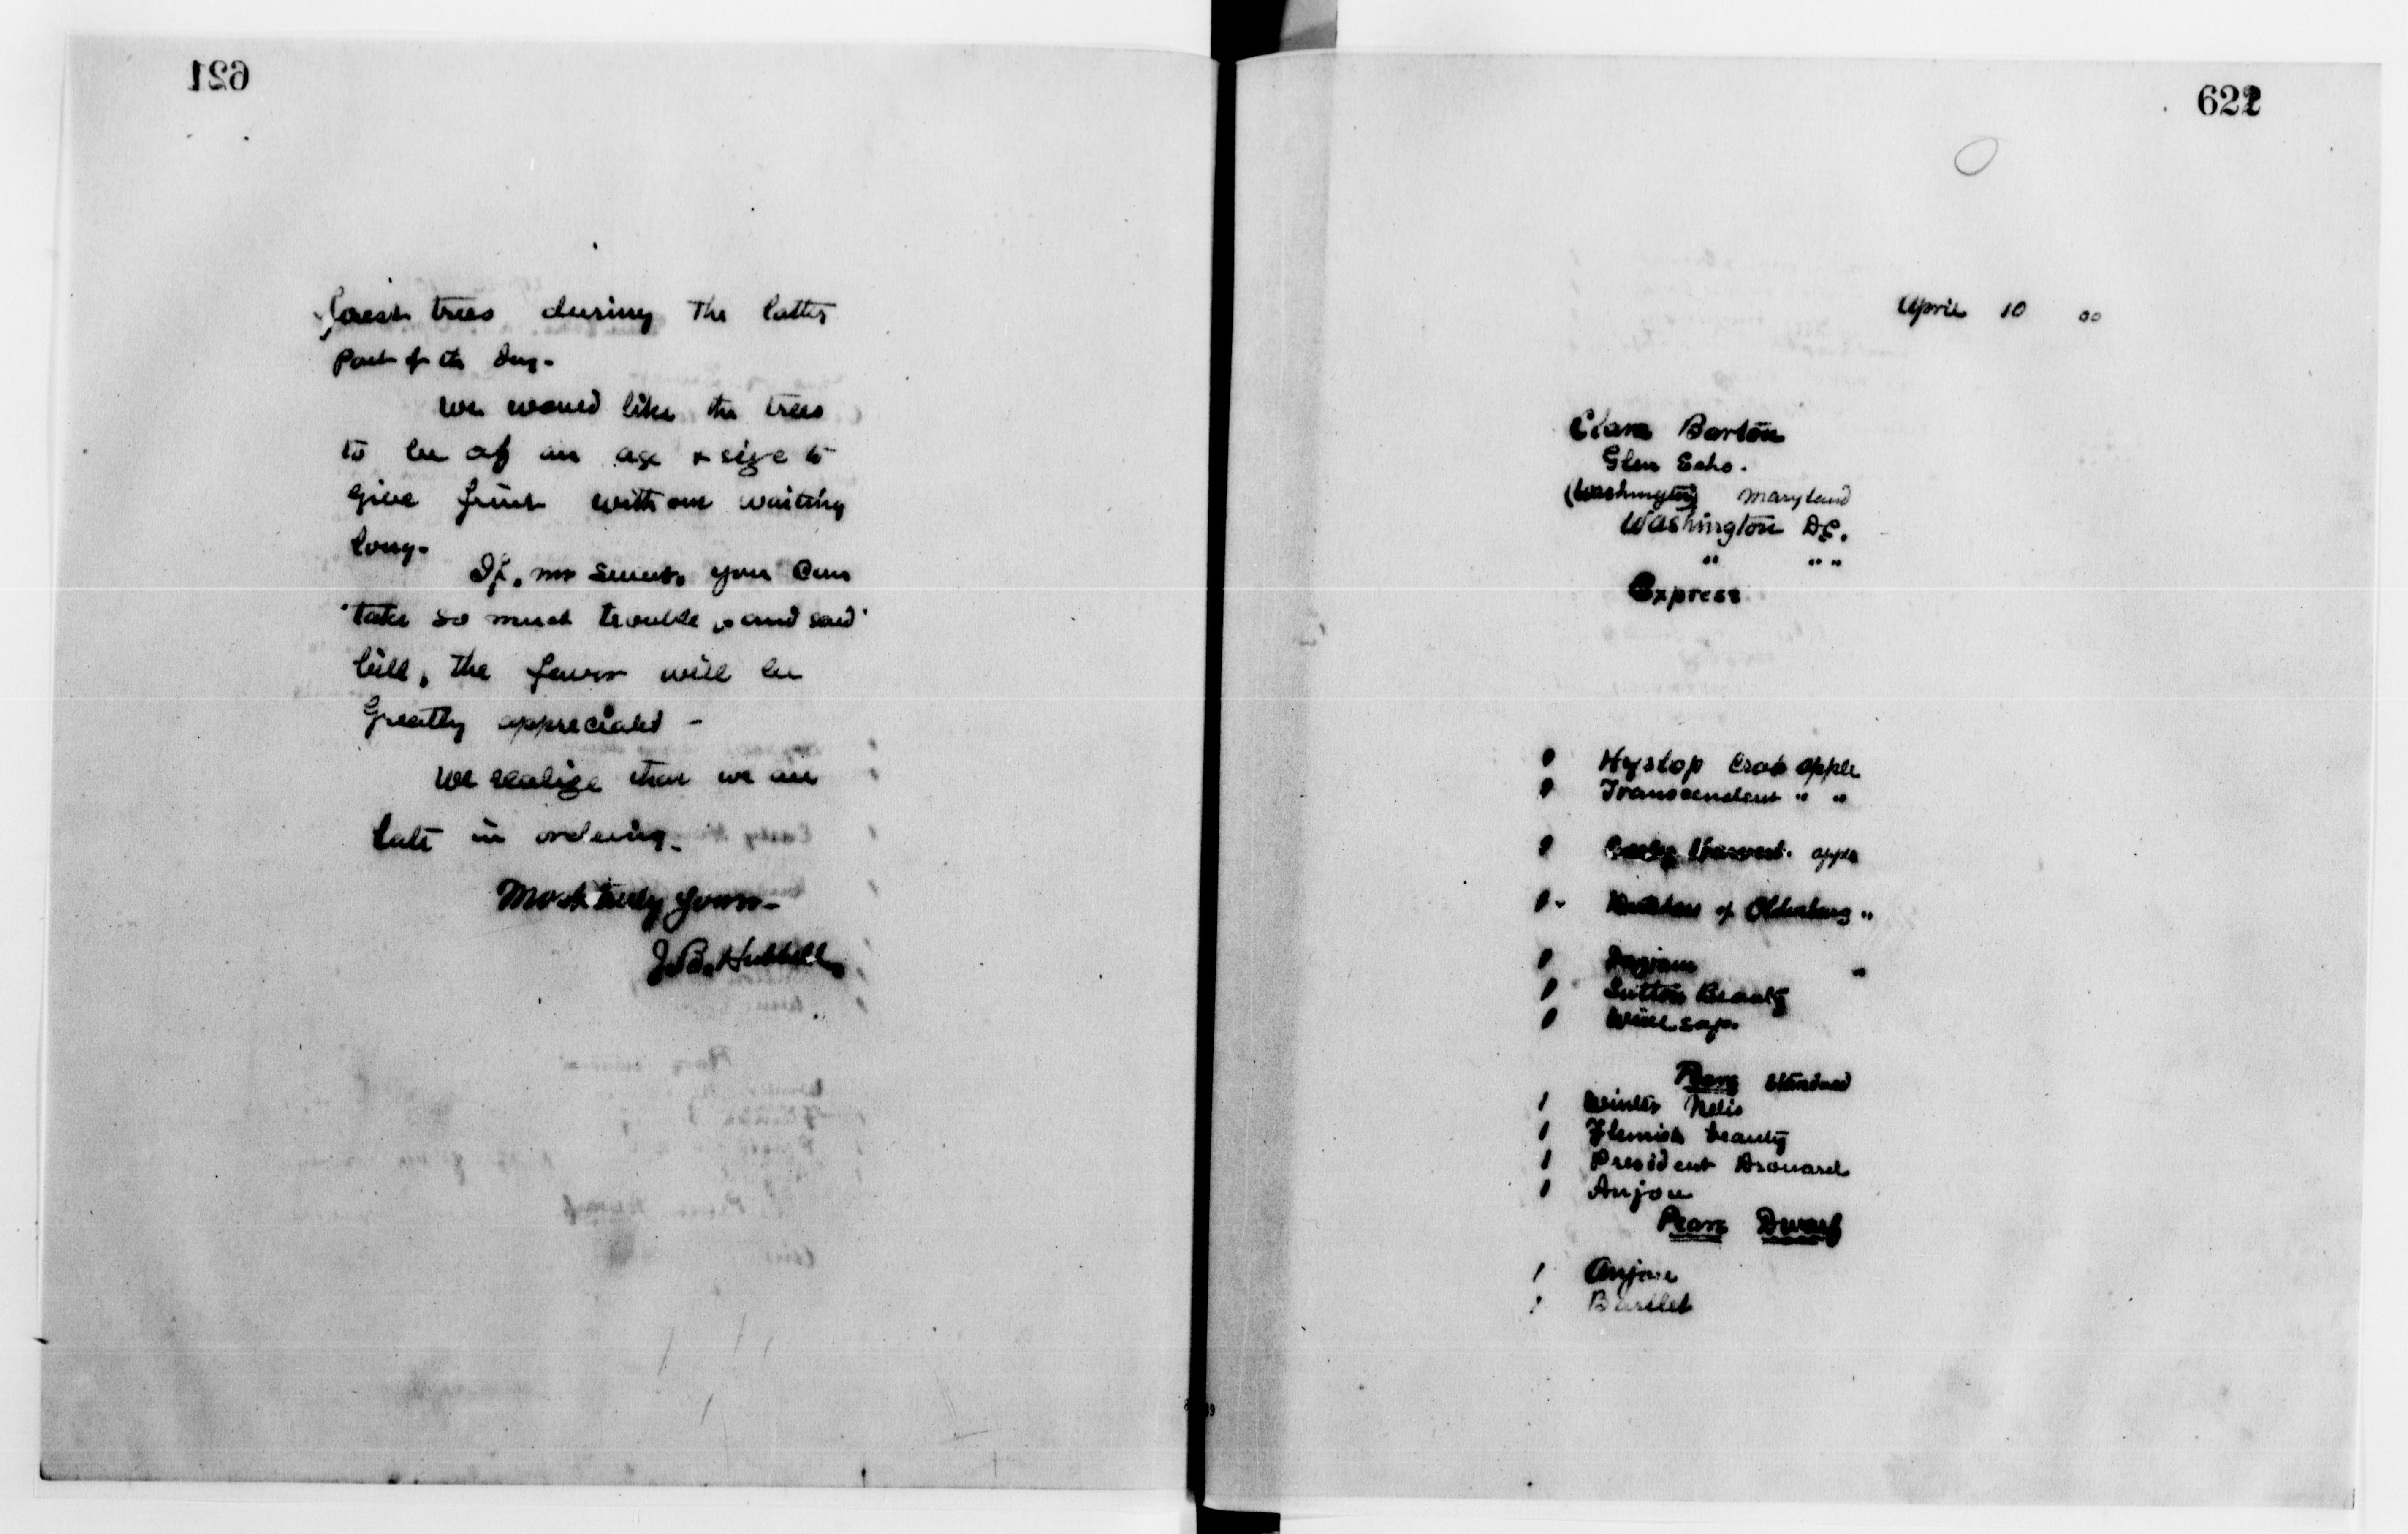 621
forest trees during the latter
part of the day -
We would like the trees
to be of an age & size to
give fruit without waiting
long -
If, you can
take so much trouble, and said
bill, the favor will be
greatly appreciated -
We realize that we are
late in ordering -
Most truly yours -
J. B. Hubbell
622
April 10 00
Clara Barton
Glen Echo.
(Washington) Maryland
Washington D.C.
" " "
Express
1 Hyslop Crab apple
1 Transcendent " "
1 Early Harvest apple
1 - Dutchess of Oldenburg "
1 "
1 Sutton Beauty
1 Winesap.
Pears Standard
1 Winter Nelis
1 Flemish beauty
1 President Drouard
1 Anjou
Pears Dwarf
1 Anjou
1 Bartlet